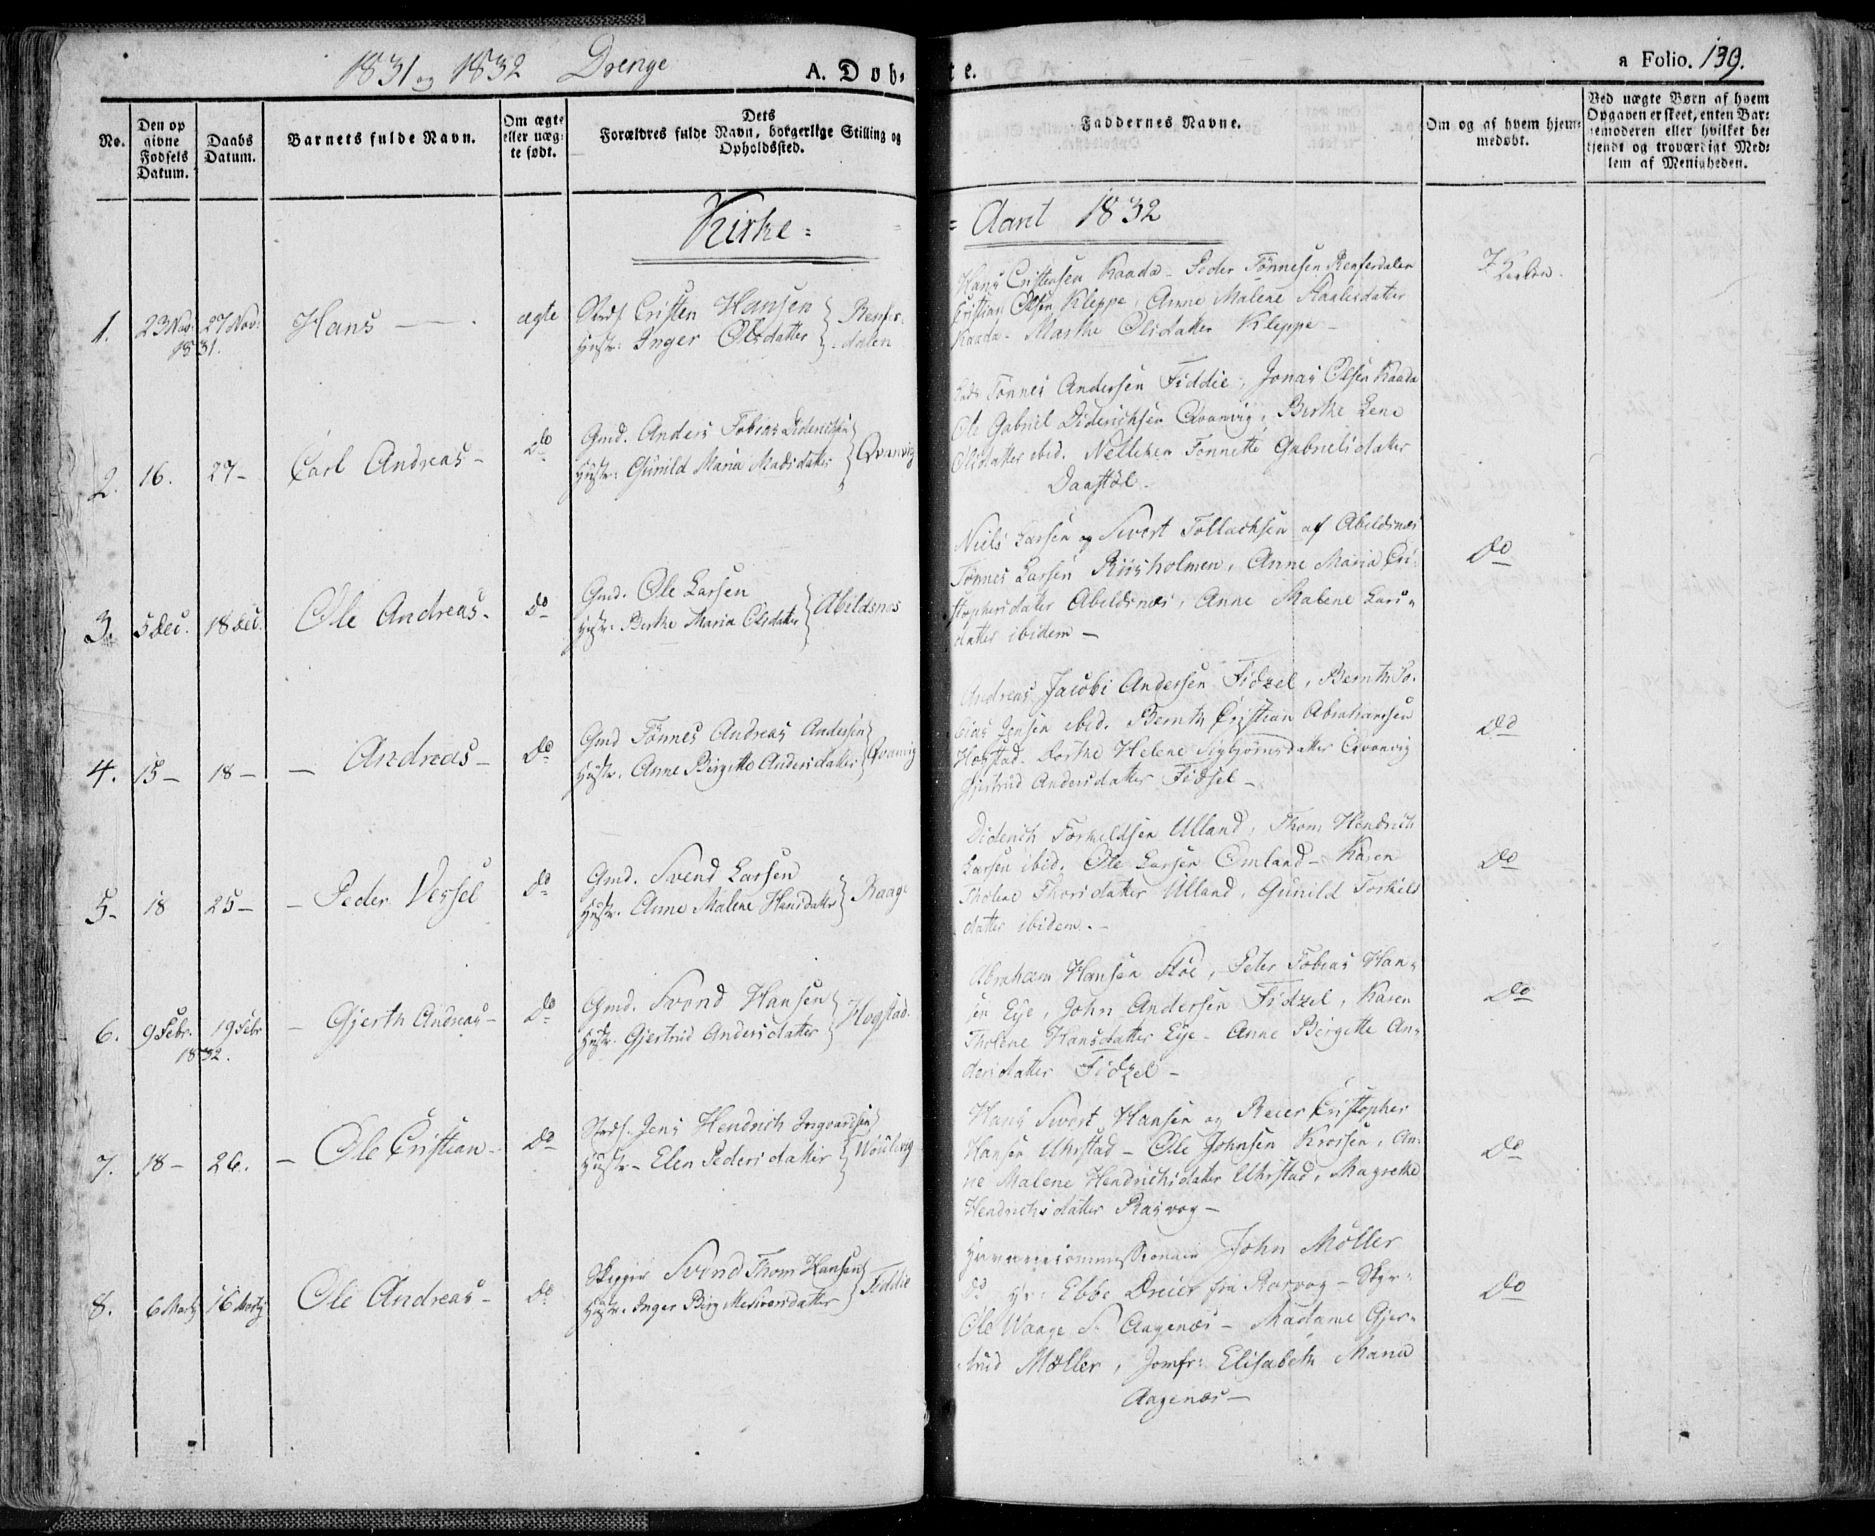 1831 og 1832 Drenge
A. Døb-
te.
a Folio. 139.
No.
Den op
givne
Fødsels
Datum.
Daabs
Datum.
Barnets fulde Navn.
Om ægte
eller uæg-
te født.
Dets
Forældres fulde Navn, borgerlige Stilling og
Opholdssted.
Faddernes Navne.
Om og af hvem hjem-
medøbt.
Ved uægte Børn af hvem
Opgaven er skeet, enten Bar-
nemoderen eller hvilket be-
kjendt og troværdigt Med-
lem af Menigheden.
Kirke-
Aaret 1832
1. 23 Nov: 27 Nov:
1831.
Hans
ægte
Cristen Hansen
Hustr: Inger Olsdatter
Renfer-
dalen
Hans Cristensen Kaada - Peder Tønnesen Renferdalen
Cristian Olsen Kleppe, Anne Malene
Kaada - Marthe Olsdatter Kleppe -
2. 16. 27 -
Carl Andreas -
do
Gmd. Anders Tobias Diderichsen
Hustr: Gunild Maria Madsdatter
Qvanvig
Tønnes Andersen Fiddie, Jonas Olsen Kaada
Ole Gabriel Diderichsen Qvanvig, Birthe Lene
Olsdatter ibid. Tonnette Gabrielsdatter
Daastøl -
3. 5 Dec. 18 Dec.
Ole Andreas -
do
Gmd. Ole Larsen
Hustr: Birthe Maria Olsdatter
Abildsnes
Niels Larsen og Sivert Tollachsen af Abildsnes
Tønnes Larsen Riisholmen, Anne Maria Cri-
stophersdatter Abildsnes, Anne Malene Lars-
datter ibidem -
Do
4. 15 - 18 -
- Andreas -
Do
Gmd Tønnes Andreas Andersen
Hustr. Anne Birgitte Andersdatter
Qvanvig
Andreas Jacobi Andersen Fidzel, Bernth To-
bias Jensen ibid. Bernth Cristian Abrahamsen
Hogstad. Dorthe Helene Sigbjørnsdatter Qvanvig
Gjertrud Andersdatter Fidsel -
Do
5 - 18 25 -
- Peder Vessel
do
Gmd. Svend Larsen
Hustr. Anne Malene Hansdatter
Raage
Diderich Torkeldsen Ulland, Thom Hendrich
Larsen ibid. Ole Larsen Omland - Karen
Tholene Thorsdatter Ulland, Gunild Torkilds
datter ibidem. -
Do
6. 9 Febr. 19 Febr
1832.
- Gjerth Andreas -
do
Gmd. Svend Hansen
Hustr. Gjertrud Andersdatter
Hogstad.
Abraham Hansen Støe, Peter Tobias Han-
sen Eye, John Andersen Fidzel, Karen
Tholene Hansdatter Eye - Anne Birgitte An-
dersdatter Fidzel -
Do
7. 18 - 26.
- Ole Cristian -
Do
Jens Hendrich Ingvardsen
Hustr - Elen Pedersdatter
Hans Sivert Hansen og Reier Cristopher
Hansen Uhrstad - Ole Johnsen Krossen, An-
ne Malene Hendrichsdatter Uhrstad, Magrethe
Hendrichsdatter Rasvog -
Do
8. 6 Martz 16 Martz
Ole Andreas -
do
Skipper Svend Thom Hansen
Hustr. Inger
Fiddie
John Møller
do Hr: Ebbe Dreier fra Rasvog - Skpr-
Ole Waage S. Aagenæs - Madame Gjer-
trud Møller, Jomfr: Elisabeth Maria
Aagenæs -
Do